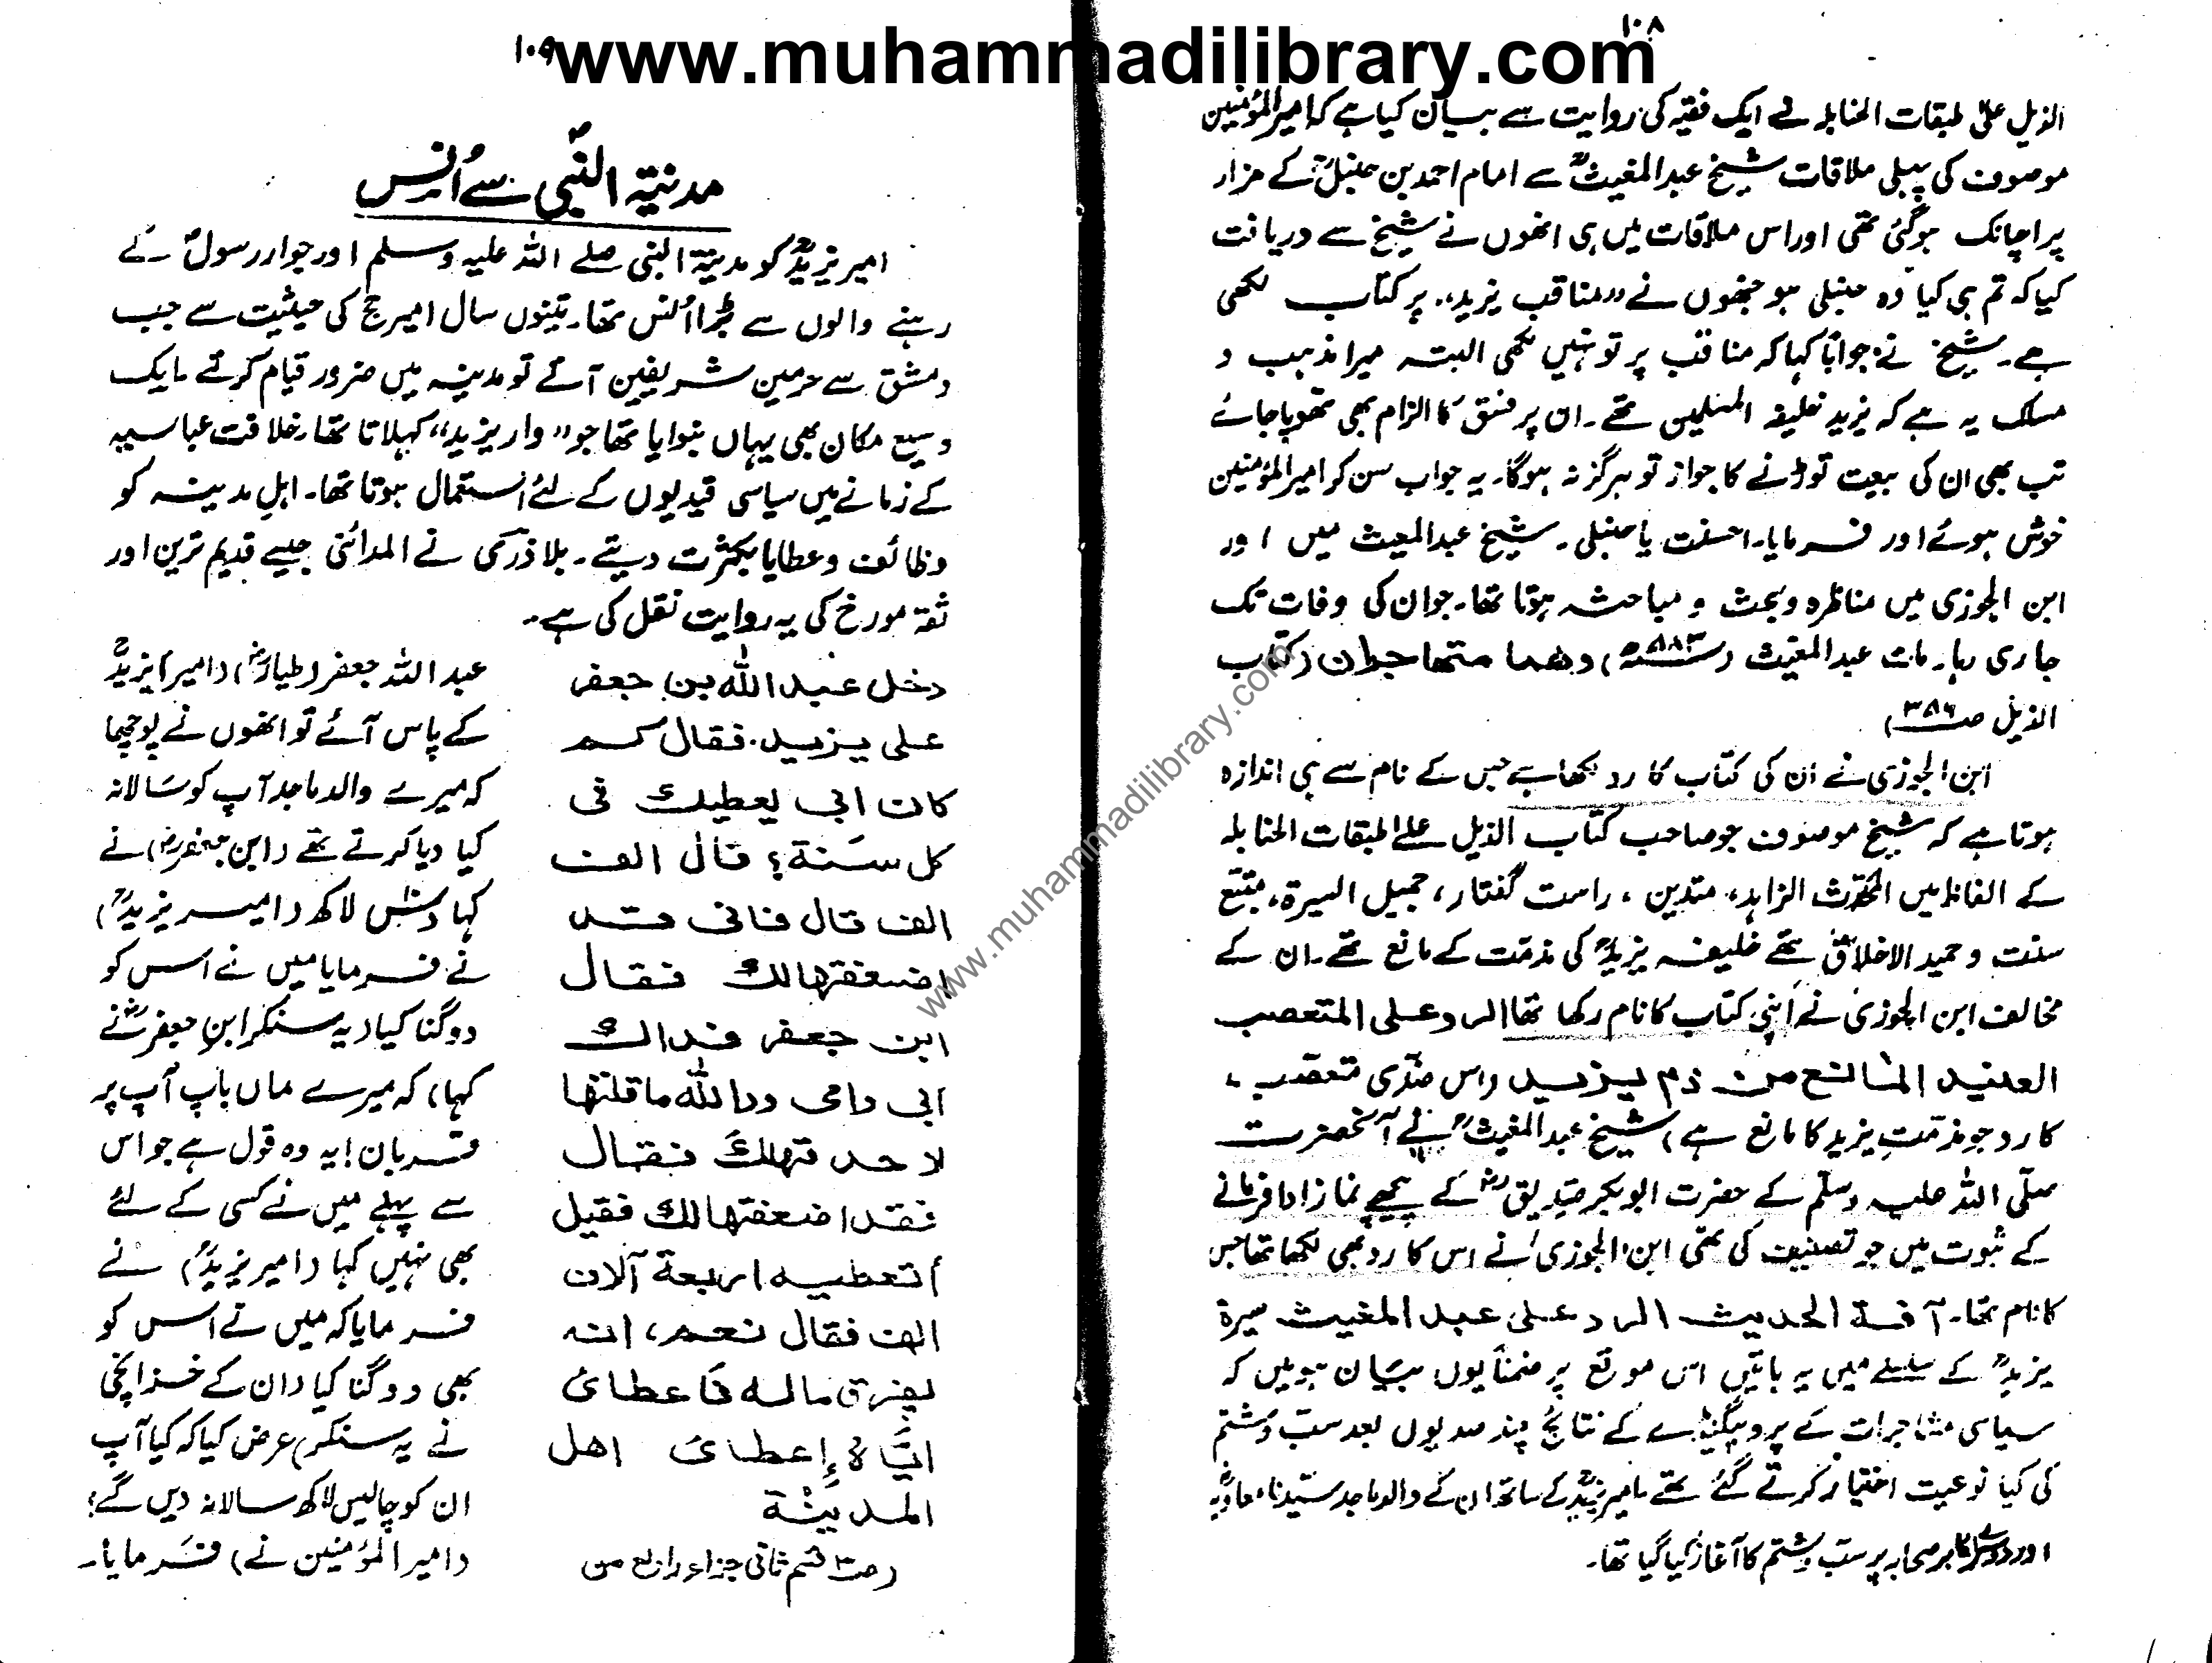 www.muhammadilibrary.com
۱۰۸
الذیل علیٰ طبقات الحنابلہ نے ایک فقیہ کی روایت سے بیان کیا ہے کہ امیرالمؤمنین
موصوف کی پہلی ملاقات شیخ عبدالمغیثؒ سے امام احمد بن حنبلؒ کے مزار
پر اچانک ہوگئی تھی اور اس ملاقات میں ہی انھوں نے شیخ سے دریافت
کیا کہ تم ہی کیا وہ حنبلی ہو جنھوں نے ”مناقب یزید“ پر کتاب لکھی
ہے۔ شیخ نے جواباً کہا کہ مناقب پر تو نہیں لکھی البتہ میرا مذہب و
مسلک یہ ہے کہ یزید خلیفۃ المسلمین تھے۔ ان پر فسق کا الزام بھی تھوپا جائے
تب بھی ان کی بیعت توڑنے کا جواز تو ہرگز نہ ہوگا۔ یہ جواب سن کر امیرالمؤمنین
خوش ہوئے اور فرمایا۔ احسنت یا حنبلی۔ شیخ عبدالمغیث میں اور
ابن الجوزی میں مناظرہ و بحث و مباحثہ ہوتا تھا۔ جو ان کی وفات تک
جاری رہا۔ مات عبدالمغیث (۵۸۳ھ) وھما متھاجران (کتاب
الذیل ص۳۵۶)
ابن الجوزی نے ان کی کتاب کا رد لکھا ہے جس کے نام سے ہی اندازہ
ہوتا ہے کہ شیخ موصوف جو صاحب کتاب الذیل علےٰ طبقات الحنابلہ
کے الفاظ میں المحدّث الزاہد، متدین، راست گفتار، جمیل السیرۃ، متبع
سنت و حمید الاخلاق تھے خلیفہ یزیدؒ کی مذمّت کے مانع تھے۔ ان کے
مخالف ابن الجوزی نے اپنی کتاب کا نام رکھا تھا الرد علی المتعصب
العنید المانع من ذم یزید (اس ضدّی متعصّب،
کا رد جو مذمّتِ یزید کا مانع ہے) شیخ عبدالمغیثؒ نے آنحضرت
صلّی اللہ علیہ وسلّم کے حضرت ابوبکر صدیقؓ کے پیچھے نماز ادا فرمانے
کے ثبوت میں جو تصنیف کی تھی ابن الجوزی نے اس کا رد بھی لکھا تھا جس
کا نام تھا۔ آفۃ الحدیث الرد علی عبد المغیث سیرۃ
یزیدؒ کے سلسلے میں یہ باتیں اس موقع پر ضمناً یوں بیان ہوئیں کہ
سیاسی مشاجرات کے پروپیگنڈے کے نتائج چند صدیوں بعد سبّ و شتم
کی کیا نوعیت اختیار کرتے گئے تھے۔ امیر یزیدؒ کے ساتھ ان کے والد ماجد سیّدنا معاویہؓ
اور دوسرے اکابر صحابہ پر سبّ و شتم کا آغاز کیا گیا تھا۔
۱۰۹
مدینۃ النّبیؐ سے اُنس
امیر یزیدؒ کو مدینۃ النبی صلے اللہ علیہ وسلم اور جوار رسولؐ کے
رہنے والوں سے بڑا اُنس تھا۔ تینوں سال امیر حج کی حیثیت سے جب
دمشق سے حرمین شریفین آئے تو مدینہ میں ضرور قیام کرتے۔ ایک
وسیع مکان بھی یہاں بنوایا تھا جو ”دار یزید“ کہلاتا تھا۔ خلافت عباسیہ
کے زمانے میں سیاسی قیدیوں کے لئے استعمال ہوتا تھا۔ اہلِ مدینہ کو
وظائف و عطایا بکثرت دیتے۔ بلاذری نے المدائنی جیسے قدیم ترین اور
ثقہ مورخ کی یہ روایت نقل کی ہے۔
دخل عبد اللّٰہ بن جعفر
علی یزید۔ فقال کم
کان ابی یعطیک فی
کل سنۃ؟ قال الف
الف قال فانی قد
اضعفتھالک فقال
ابن جعفر فداک
ابی وامی وواللّٰہ ماقلتھا
لاحد قبلک فقال
فقد اضعفتھالک فقیل
أتعطیہ اربعۃ آلاف
الف فقال نعم، انہ
یفرق مالہ فاعطائی
ایّاہُ إعطائی اھل
المدینۃ
(ص۳ قسم ثانی جزاء رابع من
عبداللہ جعفر (طیارؓ) (امیر) یزیدؒ
کے پاس آئے تو انھوں نے پوچھا
کہ میرے والد ماجد آپ کو سالانہ
کیا دیا کرتے تھے (ابن جعفرؓ) نے
کہا دس لاکھ (امیر یزیدؒ)
نے فرمایا میں نے اس کو
دوگنا کیا (یہ سنکر ابن جعفرؓ نے
کہا) کہ میرے ماں باپ آپ پر
قربان! یہ وہ قول ہے جو اس
سے پہلے میں نے کسی کے لئے
بھی نہیں کہا (امیر یزیدؒ) نے
فرمایا کہ میں نے اس کو
بھی دوگنا کیا (ان کے خزانچی
نے یہ سنکر) عرض کیا کہ کیا آپ
ان کو چالیس لاکھ سالانہ دیں گے؟
(امیرالمؤمنین نے) فرمایا۔
www.muhammadilibrary.com